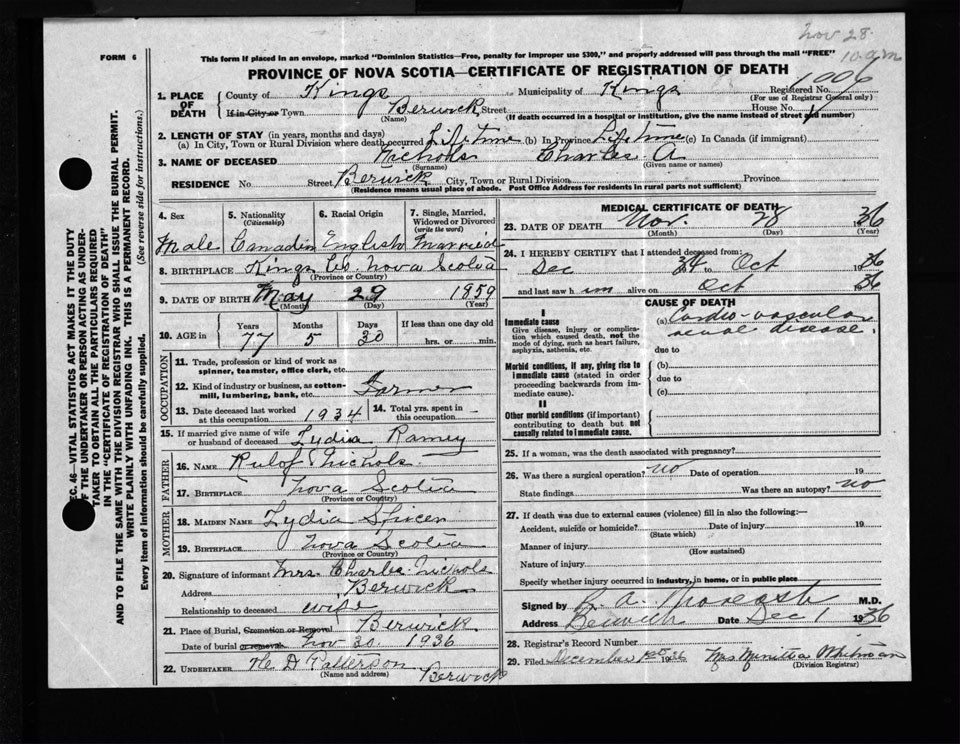 Nov 28
10 am
FORM 6
This form if placed in an envelope, marked "Dominion Statistics—Free, penalty for improper use $300," and properly addressed will pass through the mail "FREE"
PROVINCE OF NOVA SCOTIA—CERTIFICATE OF REGISTRATION OF DEATH
1. PLACE OF DEATH
County of Kings Municipality of Kings Registered No. 1006
(For use of Registrar General only)
If in City or Town Berwick Street House No.
(Name) (If death occurred in a hospital or institution, give the name instead of street and number)
2. LENGTH OF STAY (in years, months and days)
(a) In City, Town or Rural Division where death occurred Life time (b) In Province Life time (c) In Canada (if immigrant)
3. NAME OF DECEASED Nichols Charles A
(Surname) (Given name or names)
RESIDENCE No Street Berwick City, Town or Rural Division Province
(Residence means usual place of abode. Post Office Address for residents in rural parts not sufficient)
4. Sex 5. Nationality (Citizenship) 6. Racial Origin 7. Single, Married, Widowed or Divorced (write the word)
Male Canadin English Married
8. BIRTHPLACE Kings Co. Nova Scotia
(Province or Country)
9. DATE OF BIRTH May 29 1959
(Month) (Day) (Year)
10. AGE in Years Months Days If less than one day old
77 5 30 hrs. or min.
OCCUPATION
11. Trade, profession or kind of work as spinner, teamster, office clerk, etc.
12. Kind of industry or business, as cotton-mill, lumbering, bank, etc. Farmer
13. Date deceased last worked at this occupation 1934 14. Total yrs. spent in this occupation
15. If married give name of wife or husband of deceased Lydia Ramey
FATHER
16. NAME Rulof Nichols
17. BIRTHPLACE Nova Scotia
(Province or Country)
MOTHER
18. MAIDEN NAME Lydia Spicer
19. BIRTHPLACE Nova Scotia
(Province or Country)
20. Signature of informant Mrs. Charlie Nichols
Address Berwick
Relationship to deceased wife
21. Place of Burial, Cremation or Removal Berwick
Date of burial or removal Nov 30 1936
22. UNDERTAKER D Patterson Berwick
(Name and address)
MEDICAL CERTIFICATE OF DEATH
23. DATE OF DEATH Nov. 28 36
(Month) (Day) (Year)
24. I HEREBY CERTIFY that I attended deceased from:
Dec 34 to Oct 1936
and last saw him alive on Oct 1936
CAUSE OF DEATH
I
Immediate cause
Give disease, injury or complication which caused death, not the mode of dying, such as heart failure, asphyxia, asthenia, etc.
(a) Cardio-vascular
renal disease.
due to
Morbid conditions, if any, giving rise to immediate cause (stated in order proceeding backwards from immediate cause).
(b)
due to
(c)
II
Other morbid conditions (if important) contributing to death but not causally related to immediate cause.
25. If a woman, was the death associated with pregnancy?
26. Was there a surgical operation? no Date of operation 19
State findings Was there an autopsy? no
27. If death was due to external causes (violence) fill in also the following:—
Accident, suicide or homicide? Date of injury 19
(State which)
Manner of injury
(How sustained)
Nature of injury
Specify whether injury occurred in industry, in home, or in public place
Signed by M.D.
Address Berwick Date Dec 1 1936
28. Registrar's Record Number
29. Filed December 1st 1936 Mrs Whitman
(Division Registrar)
SEC. 46—VITAL STATISTICS ACT MAKES IT THE DUTY OF THE UNDERTAKER OR PERSON ACTING AS UNDERTAKER TO OBTAIN ALL THE PARTICULARS REQUIRED IN THE "CERTIFICATE OF REGISTRATION OF DEATH"
AND TO FILE THE SAME WITH THE DIVISION REGISTRAR WHO SHALL ISSUE THE BURIAL PERMIT.
WRITE PLAINLY WITH UNFADING INK. THIS IS A PERMANENT RECORD.
Every item of information should be carefully supplied. (See reverse side for instructions.)